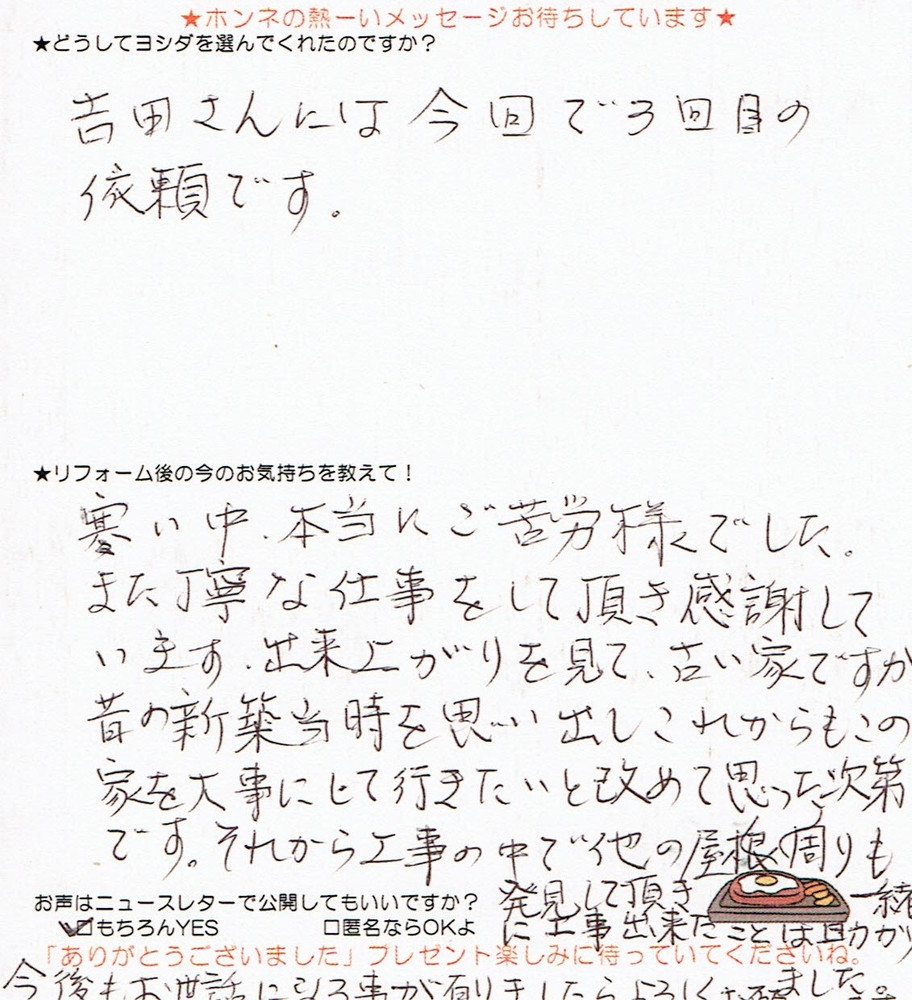 ★ホンネの熱ーいメッセージお待ちしています★
★どうしてヨシダを選んでくれたのですか？
吉田さんには今回で3回目の
依頼です。
★リフォーム後の今のお気持ちを教えて！
寒い中、本当にご苦労様でした。
また丁寧な仕事をして頂き感謝して
います。出来上がりを見て、古い家ですが
昔の新築当時を思い出しこれからもこの
家を大事にして行きたいと改めて思った次第
です。それから工事の中で他の屋根周りも
発見して頂き一緒
に工事出来たことは助かり
ました。
お声はニュースレターで公開してもいいですか？
☑もちろんYES □匿名ならOKよ
「ありがとうございました」プレゼント楽しみに待っていてくださいね。
今後もお世話になる事が有りましたらよろしくお願